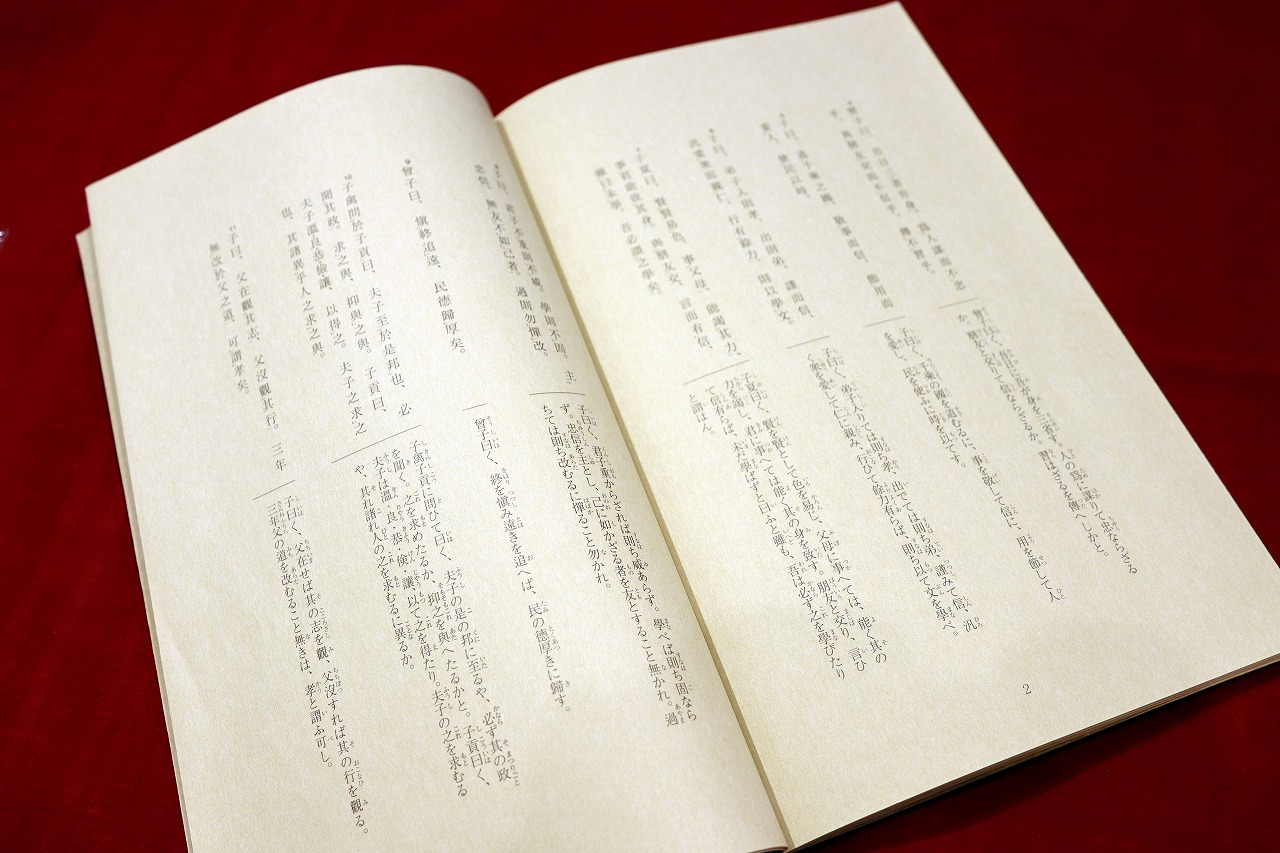 4 曾子曰、吾日三省吾身、爲人謀而不忠
乎、與朋友交而不信乎。傳不習乎。
曾子曰く、吾日に吾が身を三省す。人の爲に謀りて忠ならざる
か。朋友と交りて信ならざるか。習はざるを傳へしかと。
5 子曰、道千乘之國、敬事而信、節用而
愛人、使民以時。
子曰く、千乘の國を道むるに、事を敬して信に、用を節して人
を愛し、民を使ふに時を以てす。
6 子曰、弟子入則孝、出則弟、謹而信、
汎愛衆而親仁、行有餘力、則以學文。
子曰く、弟子入りては則ち孝、出でては則ち弟、謹みて信、汎
く衆を愛して仁に親み、行ひて餘力有らば、則ち以て文を學べ。
7 子夏曰、賢賢易色、事父母、能竭其力、
事君能致其身、與朋友交、言而有信、
雖曰未學、吾必謂之學矣。
子夏曰く、賢を賢として色を易し、父母に事へては、能く其の
力を竭し、君に事へては能く其の身を致す。朋友と交り、言ひ
て信有らば、未だ學ばずと曰ふと雖も、吾は必ず之を學びたり
と謂はん。
2
8 子曰、君子不重則不威。學則不固。主
忠信、無友不如己者。過則勿憚改。
子曰く、君子重からざれば則ち威あらず。學べば則ち固なら
ず。忠信を主とし、己に如かざる者を友とすること無かれ。過
ちては則ち改むるに憚ること勿かれ。
9 曾子曰、愼終追遠、民德歸厚矣。
曾子曰く、終を愼み遠きを追へば、民の德厚きに歸す。
10 子禽問於子貢曰、夫子至於是邦也、必
聞其政。求之與、抑與之與。子貢曰、
夫子溫良恭儉讓、以得之。夫子之求之
也、其諸異乎人之求之與。
子禽子貢に問ひて曰く、夫子の是の邦に至るや、必ず其の政
を聞く。之を求めたるか、抑之を與へたるかと。子貢曰く、
夫子は溫・良・恭・儉・讓、以て之を得たり。夫子の之を求むる
や、其れ諸れ人の之を求むるに異るか。
11 子曰、父在觀其志、父沒觀其行。三年
無改於父之道、可謂孝矣。
子曰く、父在せば其の志を觀、父沒すれば其の行を觀る。
三年父の道を改むること無きは、孝と謂ふ可し。